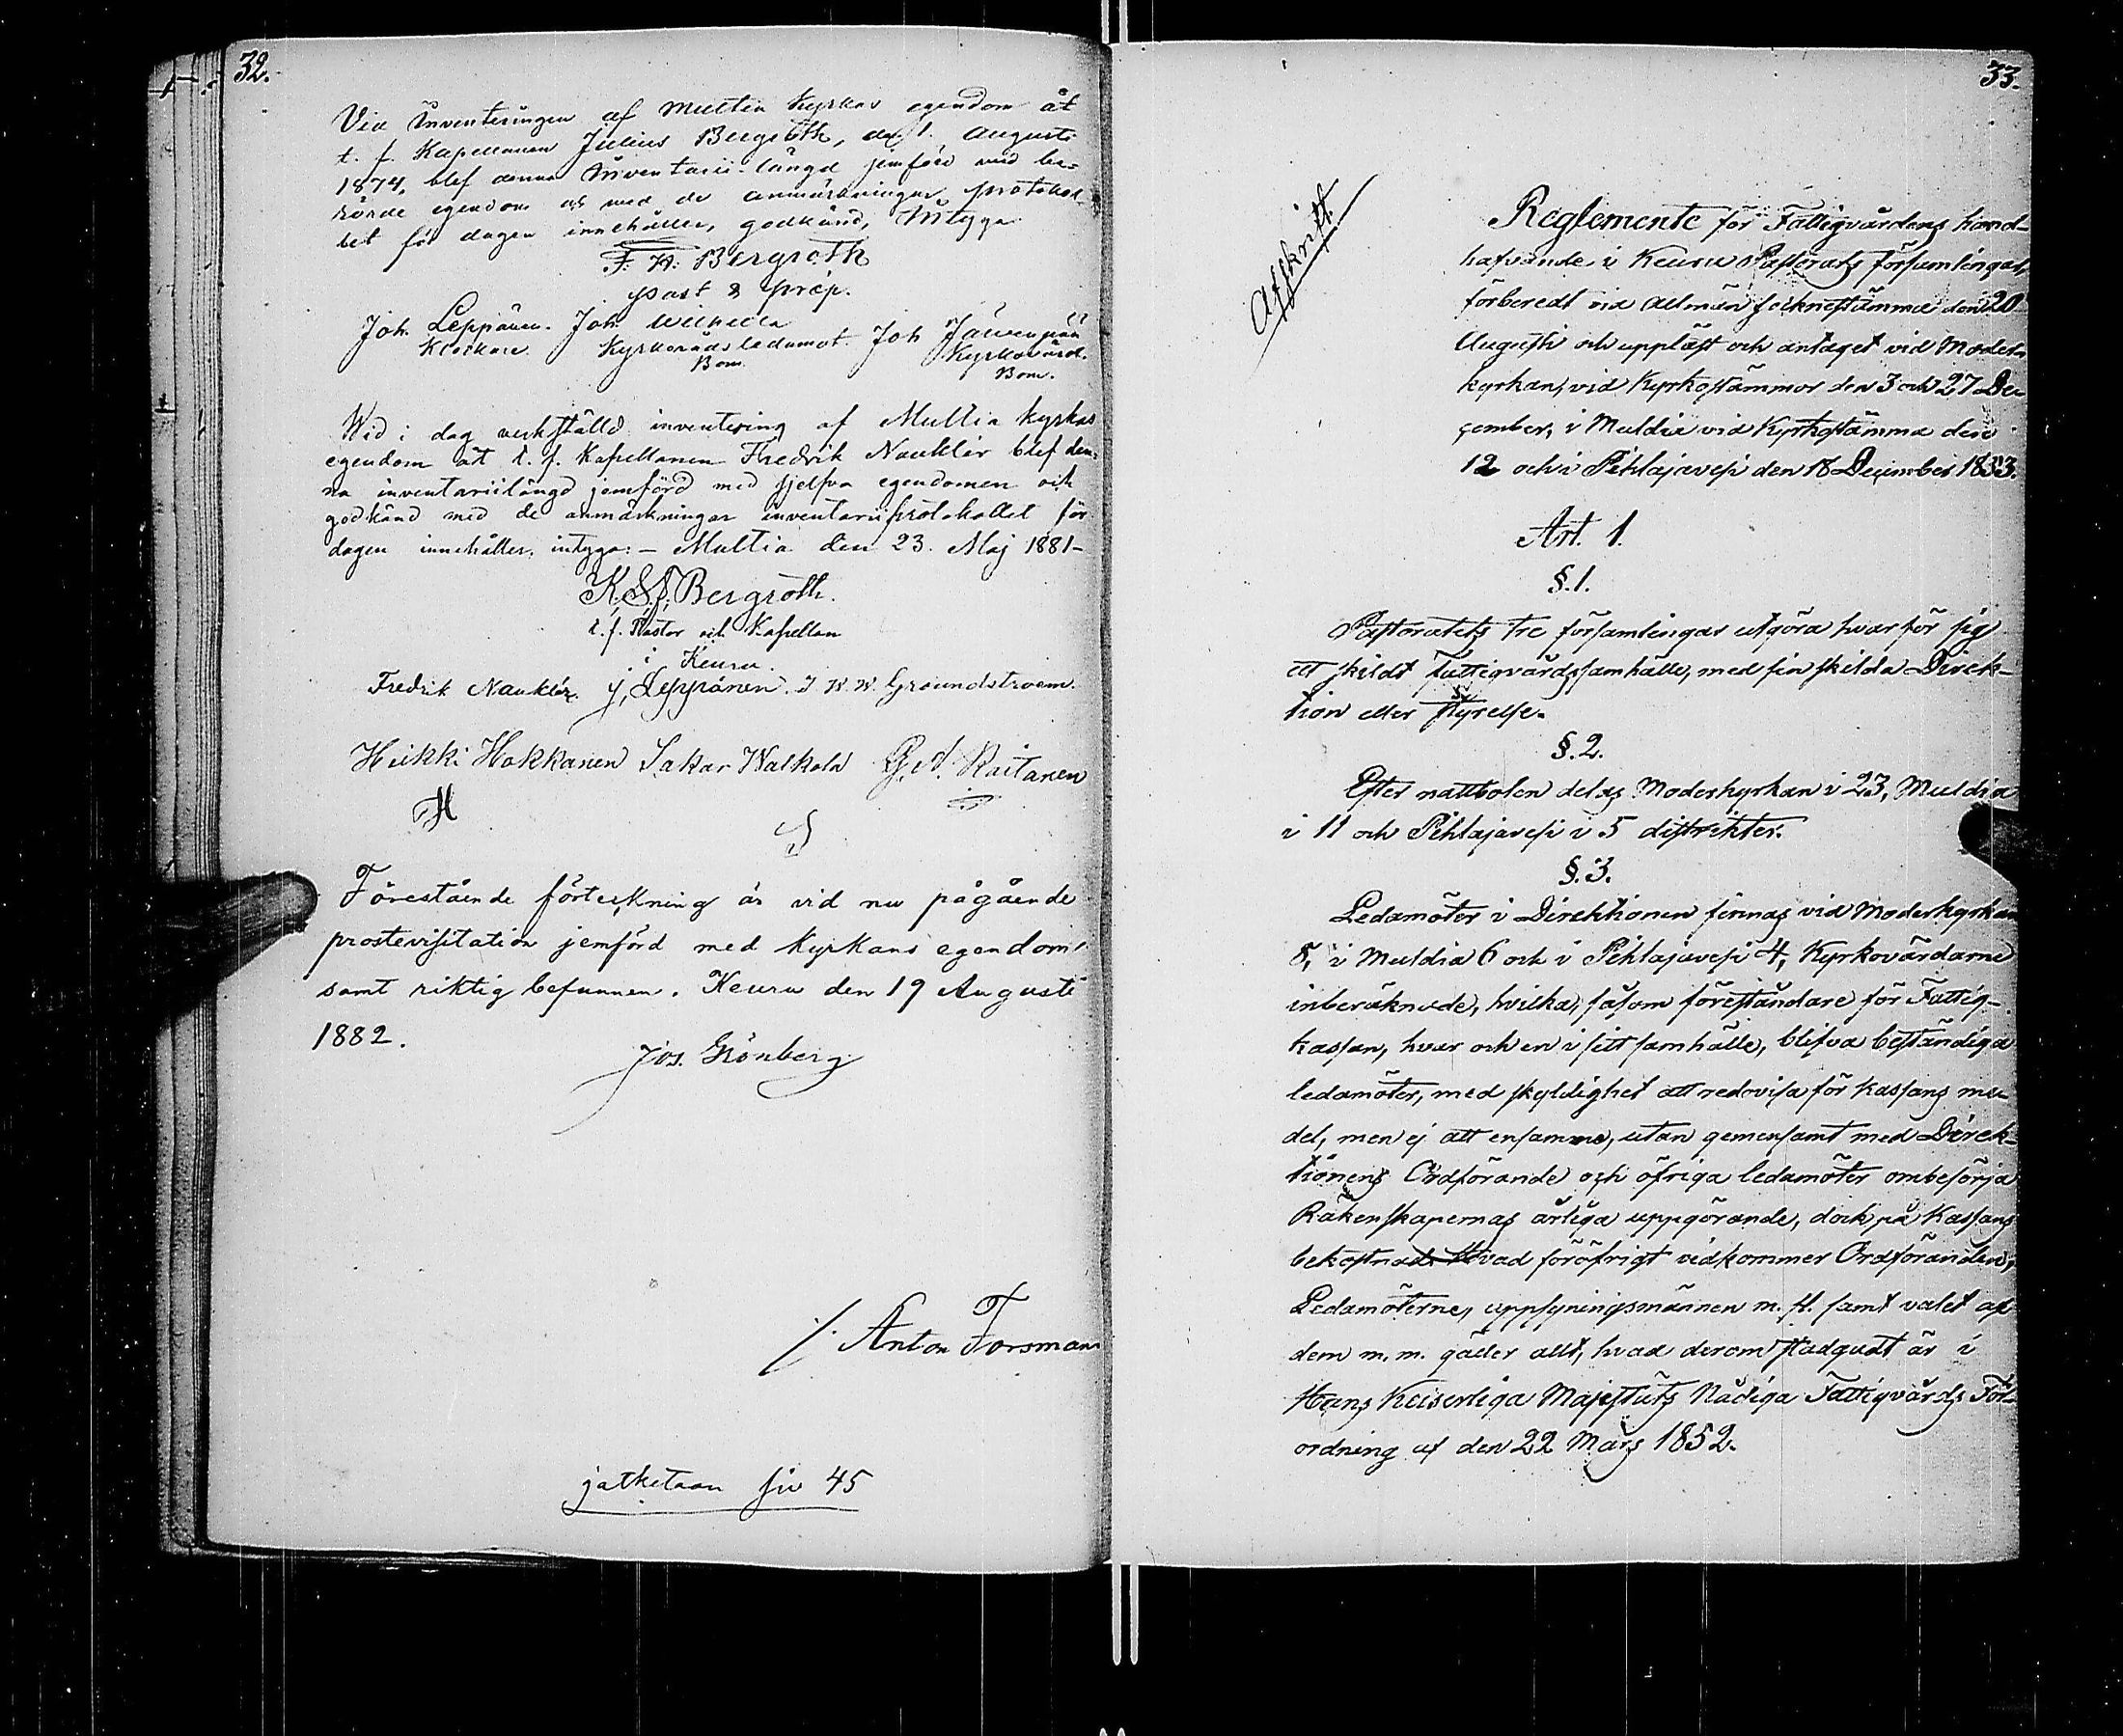 32.
Vid Inventeringen af Multia Kyrkas egendom åt
t. f. Kapellanen Julius Bergroth, den 1. Augusti
1874, blef denna Inventarii-längd jemförd med be-
rörde egendom och med de anmärkningar protokol-
let för dagen innehåller, godkänd, Intyga
F. H. Bergroth
past & præp.
Joh. Leppänen. Joh. Joh Jäwenpää
Klockare. Kyrkorådsledamot Kyrkovärd.
Bom. Bom.
Wid i dag verkställd inventering af Multia kyrkas
egendom åt t. f. Kapellanen Fredrik Nauklér blef den-
na inventariilängd jemförd med sjelfva egendomen och
godkänd med de anmärkningar inventariiprotokollet för
dagen innehåller, intyga: - Multia den 23. Maj 1881-
K. S. J. Bergroth.
t. f. Pastor och Kapellan
i Keuru.
Fredrik Nauklér. J. Leppänen. J. W. W. Groundstroem.
Heikki Hokkanen Sakar Walkola G. A. Raitanen
H
Förestående förteckning är vid nu pågående
prostevisitation jemförd med Kyrkans egendom,
samt riktig befunnen. Keuru den 19 Augusti
1882.
Jos. Grönberg
/. Anton Forsman
jatketaan siv 45
33.
Afskrift.
Reglemente för Fattigvårdens hand-
hafvande i Keuru Pastorats församlingar,
förberedt vid allmän socknestämma den 20
Augusti och uppläst och antaget vid Moder-
kyrkan, vid Kyrkostämmor den 3 och 27 De-
cember, i Muldia vid Kyrkostämma den
12 och i Pihlajavesi den 18 December 1853.
Art. 1.
§. 1.
Pastoratets tre församlingar utgöra hvar för sig
ett skildt Fattigvårdssamhälle, med sin skilda Direk-
tion eller styrelse.
§. 2.
Efter mantalen delas Moderkyrkan i 23, Muldia
i 11 och Pihlajavesi i 5 distrikter.
§. 3.
Ledamöter i Direktionen finnas vid Moderkyrkan
8, i Muldia 6 och i Pihlajavesi 4, Kyrkovärdarne
inberäknade, hvilka, såsom föreståndare för Fattig-
kassan, hvar och en i sitt samhälle, blifva beständiga
ledamöter, med skyldighet att redovisa för kassans me-
del, men ej att ensamme, utan gemensamt med Direk-
tionens Ordförande och öfriga ledamöter ombesörja
Räkenskapernas årliga uppgörande, dock på Kassans
bekostnad. Hvad föröfrigt vidkommer Ordföranden,
Ledamöterne, uppsyningsmännen m. fl. samt valet af
dem m. m. gäller allt, hvad derom stadgadt är i
Hans Keiserliga Majestäts Nådiga Fattigvårds För-
ordning af den 22 Mars 1852.